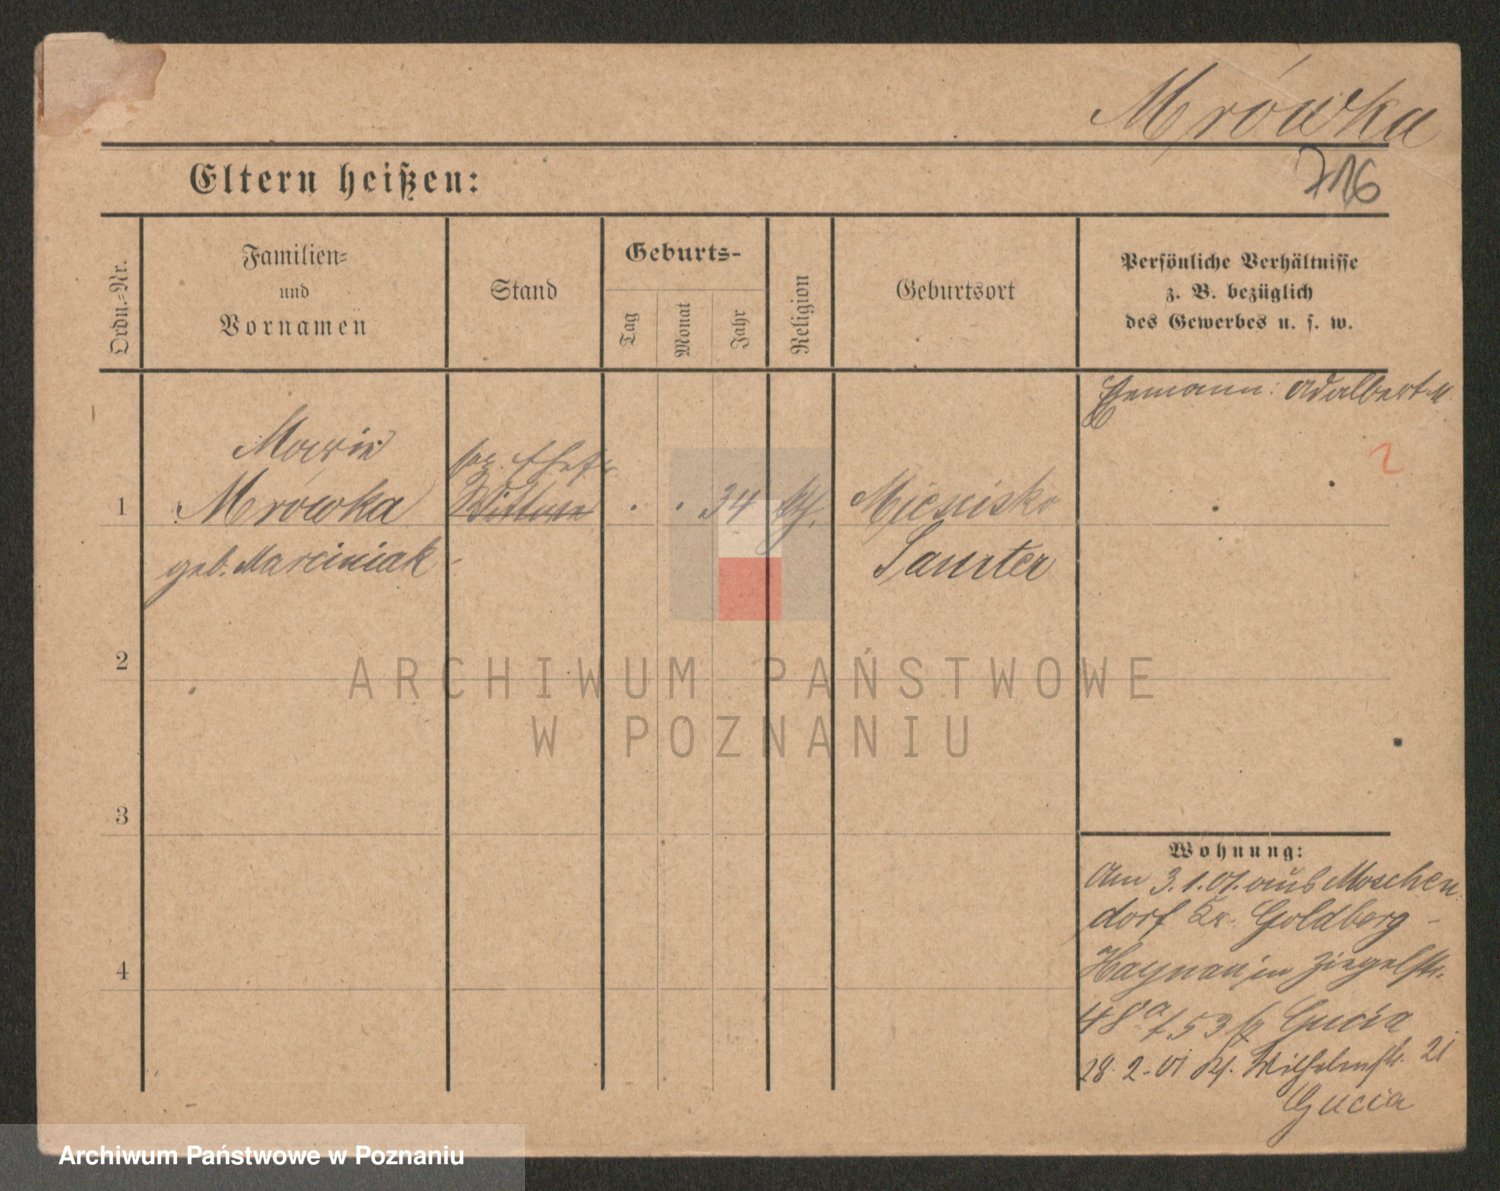 Mrówka
Eltern heißen:
716
Ordn.-Nr.
Familien-
und
Vornamen
Stand
Geburts-
Tag
Monat
Jahr
Religion
Geburtsort
Persönliche Verhältnisse
z. B. bezüglich
des Gewerbes u. s. w.
Ehemann: Adalbert M.
2
Marie
1 Mrówka Wittwe 34
geb. Marciniak Samter
2
3
4
ARCHIWUM PAŃSTWOWE
W POZNANIU
Wohnung:
Am 3.1.01. aus Moschen
dorf Kr. Goldberg-
Haynau in Ziegelstr.
48a Gucia
28.2.01 Wilhelmstr. 21
Gucia
Archiwum Państwowe w Poznaniu